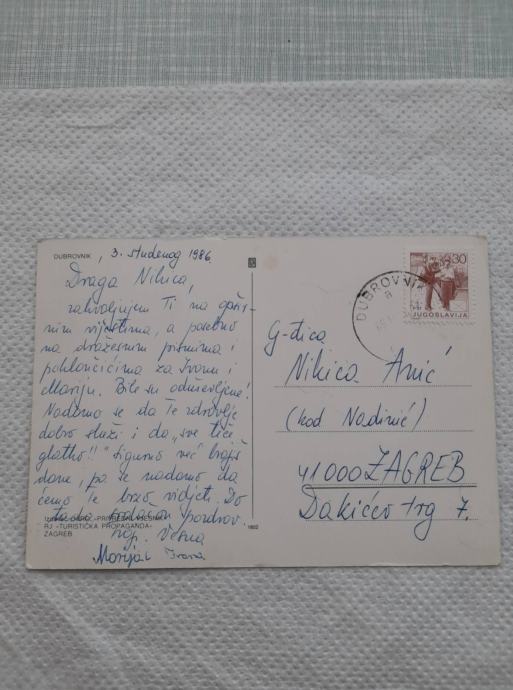 DUBROVNIK, 3. studenog 1986
Draga Nikica,
zahvaljujem Ti na opšir-
nim vijestima, a posebno
na dražesnim pismima i
poklončićima za Ivanu i
Mariju. Bile su oduševljene!
Nadamo se da Te zdravlje
dobro služi i da „sve teče
glatko!!" Sigurno već brojiš
dane, pa se nadamo da
ćemo Te brzo vidjeti. Do
tada srdačan pozdrav
Vesna
Marija i Ivana
RJ »TURISTIČKA PROPAGANDA«
ZAGREB
1802
DUBROVNIK
30
JUGOSLAVIJA
G-đica
Nikica Anić
(kod Nadinić)
41000 ZAGREB
Dakićev trg 7.